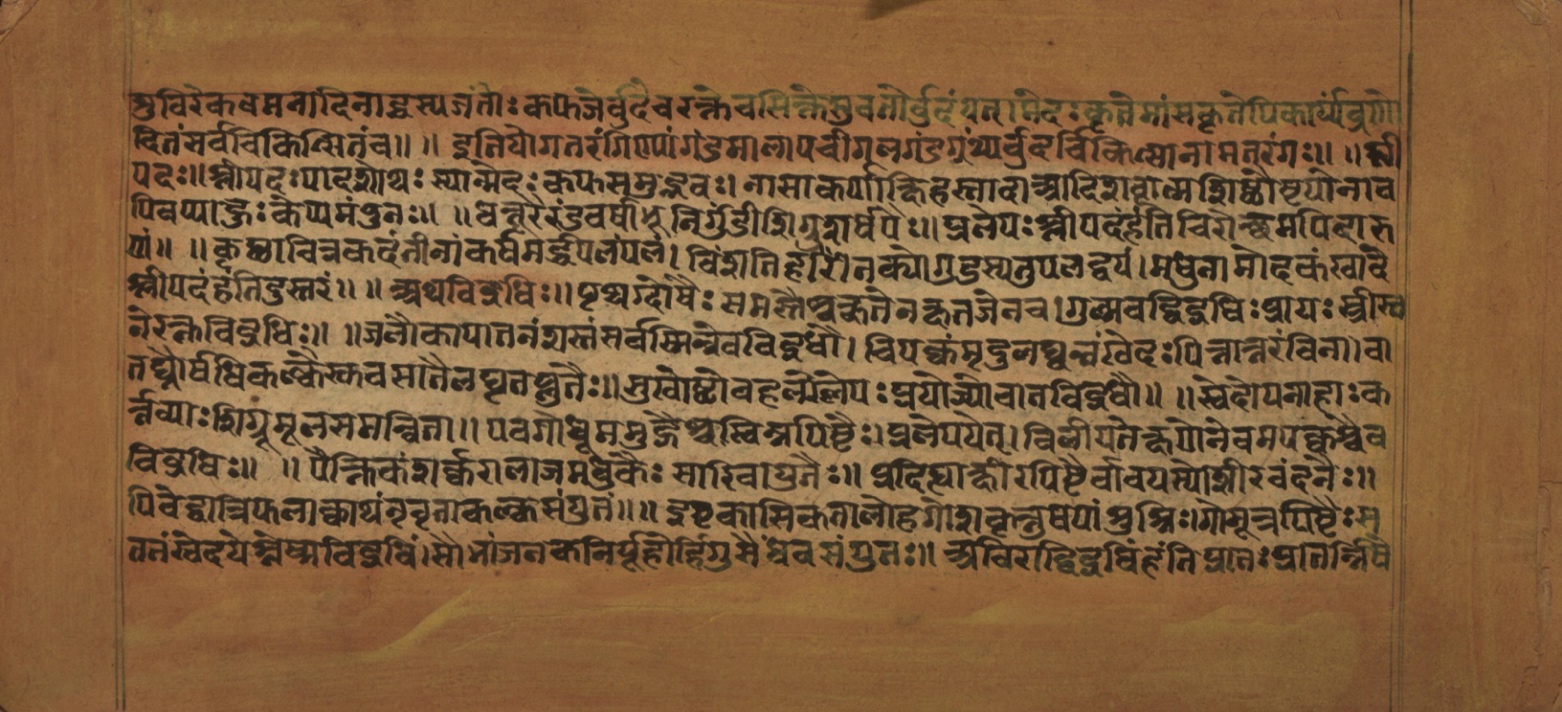 तु विरेकवमनादिनाद्धस्यजंतोः कफजेर्वुदेवरक्तेचसिक्तेस्रुवतोर्वुदंयत्। मेदः कृतेमांसकृतेपिकार्य्यंव्रणो
दितंसर्वचिकित्सितंच॥ ॥ इतियोगतरंगिण्यांगंडमालापचीगलगंडग्रंथ्यर्वुदचिकित्सानामतरंगः॥ ॥ श्ली
पदः॥ श्लीपदः पादशोथः स्यान्मेदः कफसमुद्भवः। नासाकर्णाक्षिहस्तादौ
पिवप्याहुः केप्यमंत्रुनः॥ ॥ धत्तूरैरंडवर्षाभूनिर्गुंडीशिग्रुशर्षपैः॥ प्रलेपः श्लीपदंहंतिचिरोत्छमपिदारु
णं॥ ॥ कृष्णाचित्रकदंतीनांकर्षमर्द्धपलंपलं। विंशतिर्हरीतक्योगुडस्यतुपलद्वयं। मधुनामोदकंखादे
श्लीपदंहंतिदुस्तरं॥ ॥ अथविद्रधिः॥ पृथग्दोषैः समस्तैश्चक्षतेनक्षतजेनच। गुल्मवद्विद्रधिः प्रायः स्त्रीस्त
नेरक्तविद्रधिः॥ ॥ जलौकापातनंशस्तंसर्वस्मिन्नेवविद्रधौ। विपक्वंमृदुलघ्वन्नंस्वेदः पित्तान्तरंविना॥ वा
तघ्नौषधिकल्कैस्तुवसातैलघृतप्लुतैः॥ सुखोष्णोवहलोलेपः प्रयोज्योवातविद्रधौ॥ ॥ स्वेदोपनाहाः क
र्त्तव्याः शिग्रुमूलसमन्विता॥ यवगोधूममुद्गैश्चस्विन्नपिष्टैः। प्रलेपयेत्। विलीयतेक्षणेनैवमपक्वश्चैव
विद्रधिः॥ ॥ पैत्तिकंशर्करालाजमधुकैः सारिवायुतैः॥ प्रदिह्याक्षीरपिष्टैर्वापयस्योशीरचंदनैः॥
पिवेद्वात्रिफलाक्वाथंतृवृताकल्कसंयुतं॥ ॥ इष्टकासिकतालोहगोशकृत्तुषपांशुभिः। गोमूत्रपिष्टैः स
ततंस्वेदयेश्लेष्मविद्रधिं। सौभांजनकनिर्यूहोहिंगुसैंधवसंयुतः॥ अचिराद्विद्रधिंहंतिप्रातः प्रातर्निषे